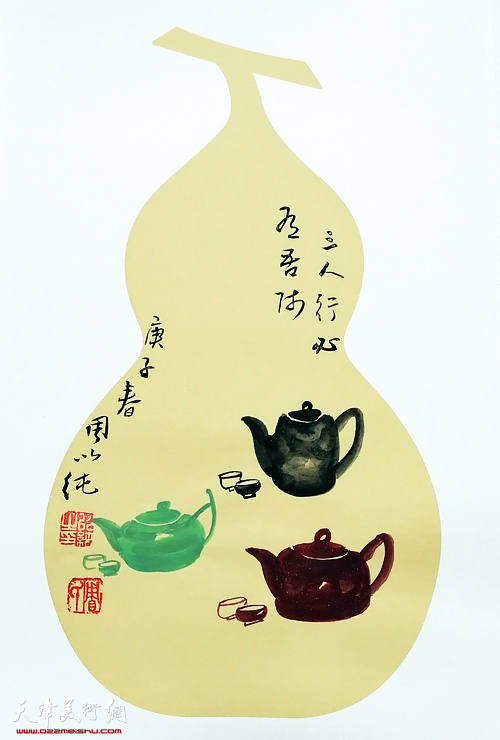 三人行必
有吾师
庚子春
周以纯
天津美术網
www.022meishu.com